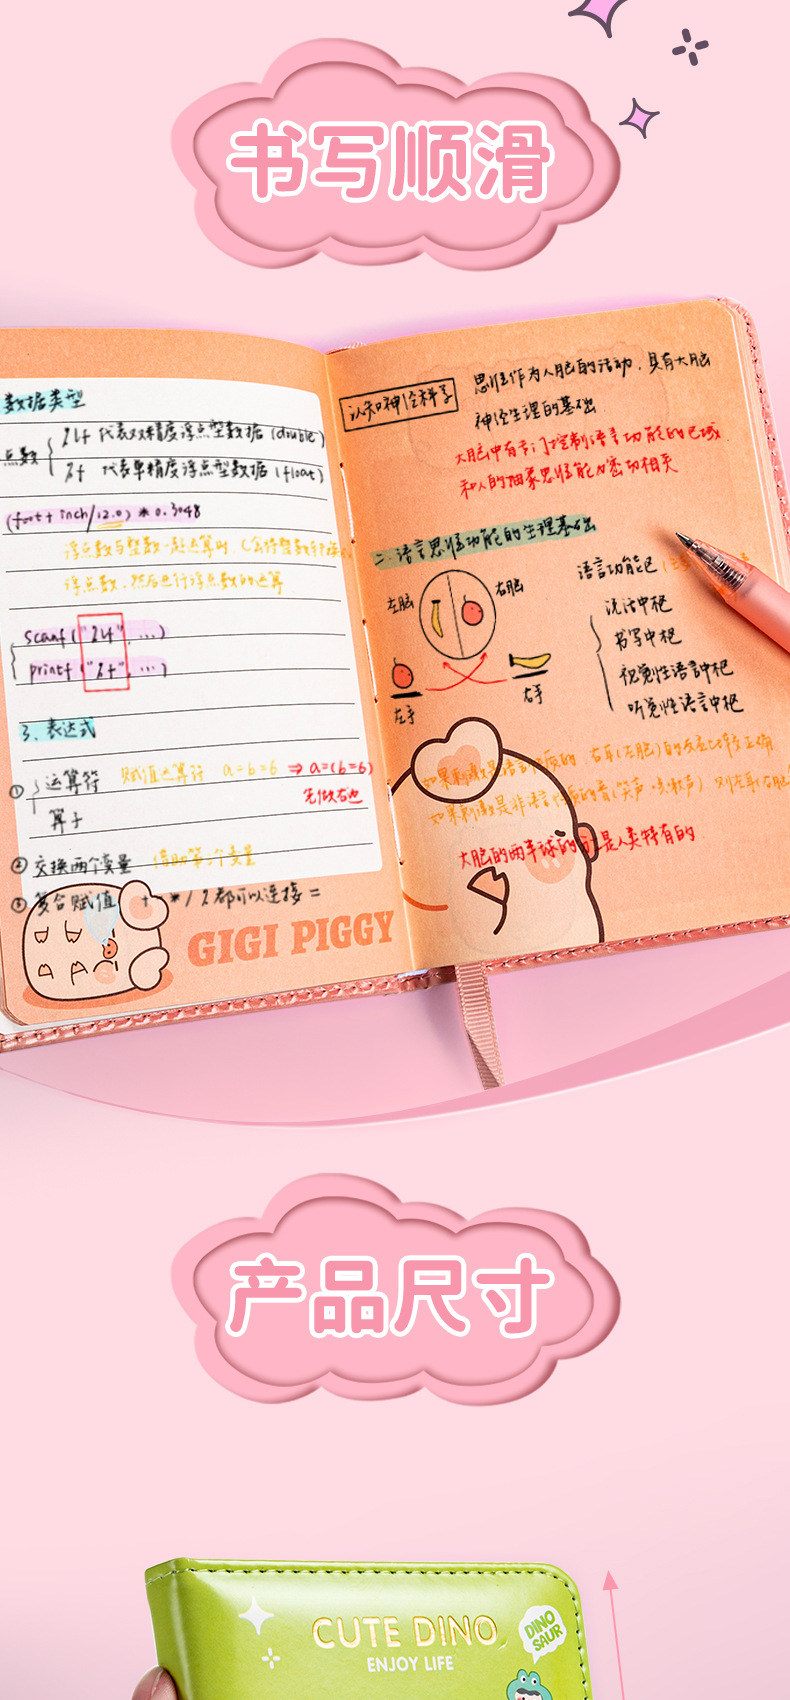 书写顺滑
数据类型
点数
%lf 代表双精度浮点型数据 (double)
%f 代表单精度浮点型数据 (float)
(foot + inch/12.0) * 0.3048
浮点数与整数一起运算时
浮点数,然后进行浮点数的运算
scanf ("%lf", ...)
printf ("%f", ...)
3. 表达式
① 运算符 赋值运算符 a=b=6 ⇒ a=(b=6)
先做右边
算子
② 交换两个变量 借助第三个变量
③ 复合赋值 + - * / % 都可以连接 =
GIGI PIGGY
认知神经科学
思维作为人脑的活动,具有大脑
神经生理的基础
大脑中有专门控制语言功能的区域
和人的抽象思维能力密切相关
二.语言思维功能的生理基础
左脑
右脑
左手
右手
语言功能区
说话中枢
书写中枢
视觉性语言中枢
听觉性语言中枢
如果刺激是语言性质的 右耳(左脑)的反应比较正确
如果刺激是非语言性质的音(笑声、咳嗽声) 则左耳(右脑
大脑的两半球的 是人类特有的
产品尺寸
CUTE DINO
ENJOY LIFE
DINO
SAUR